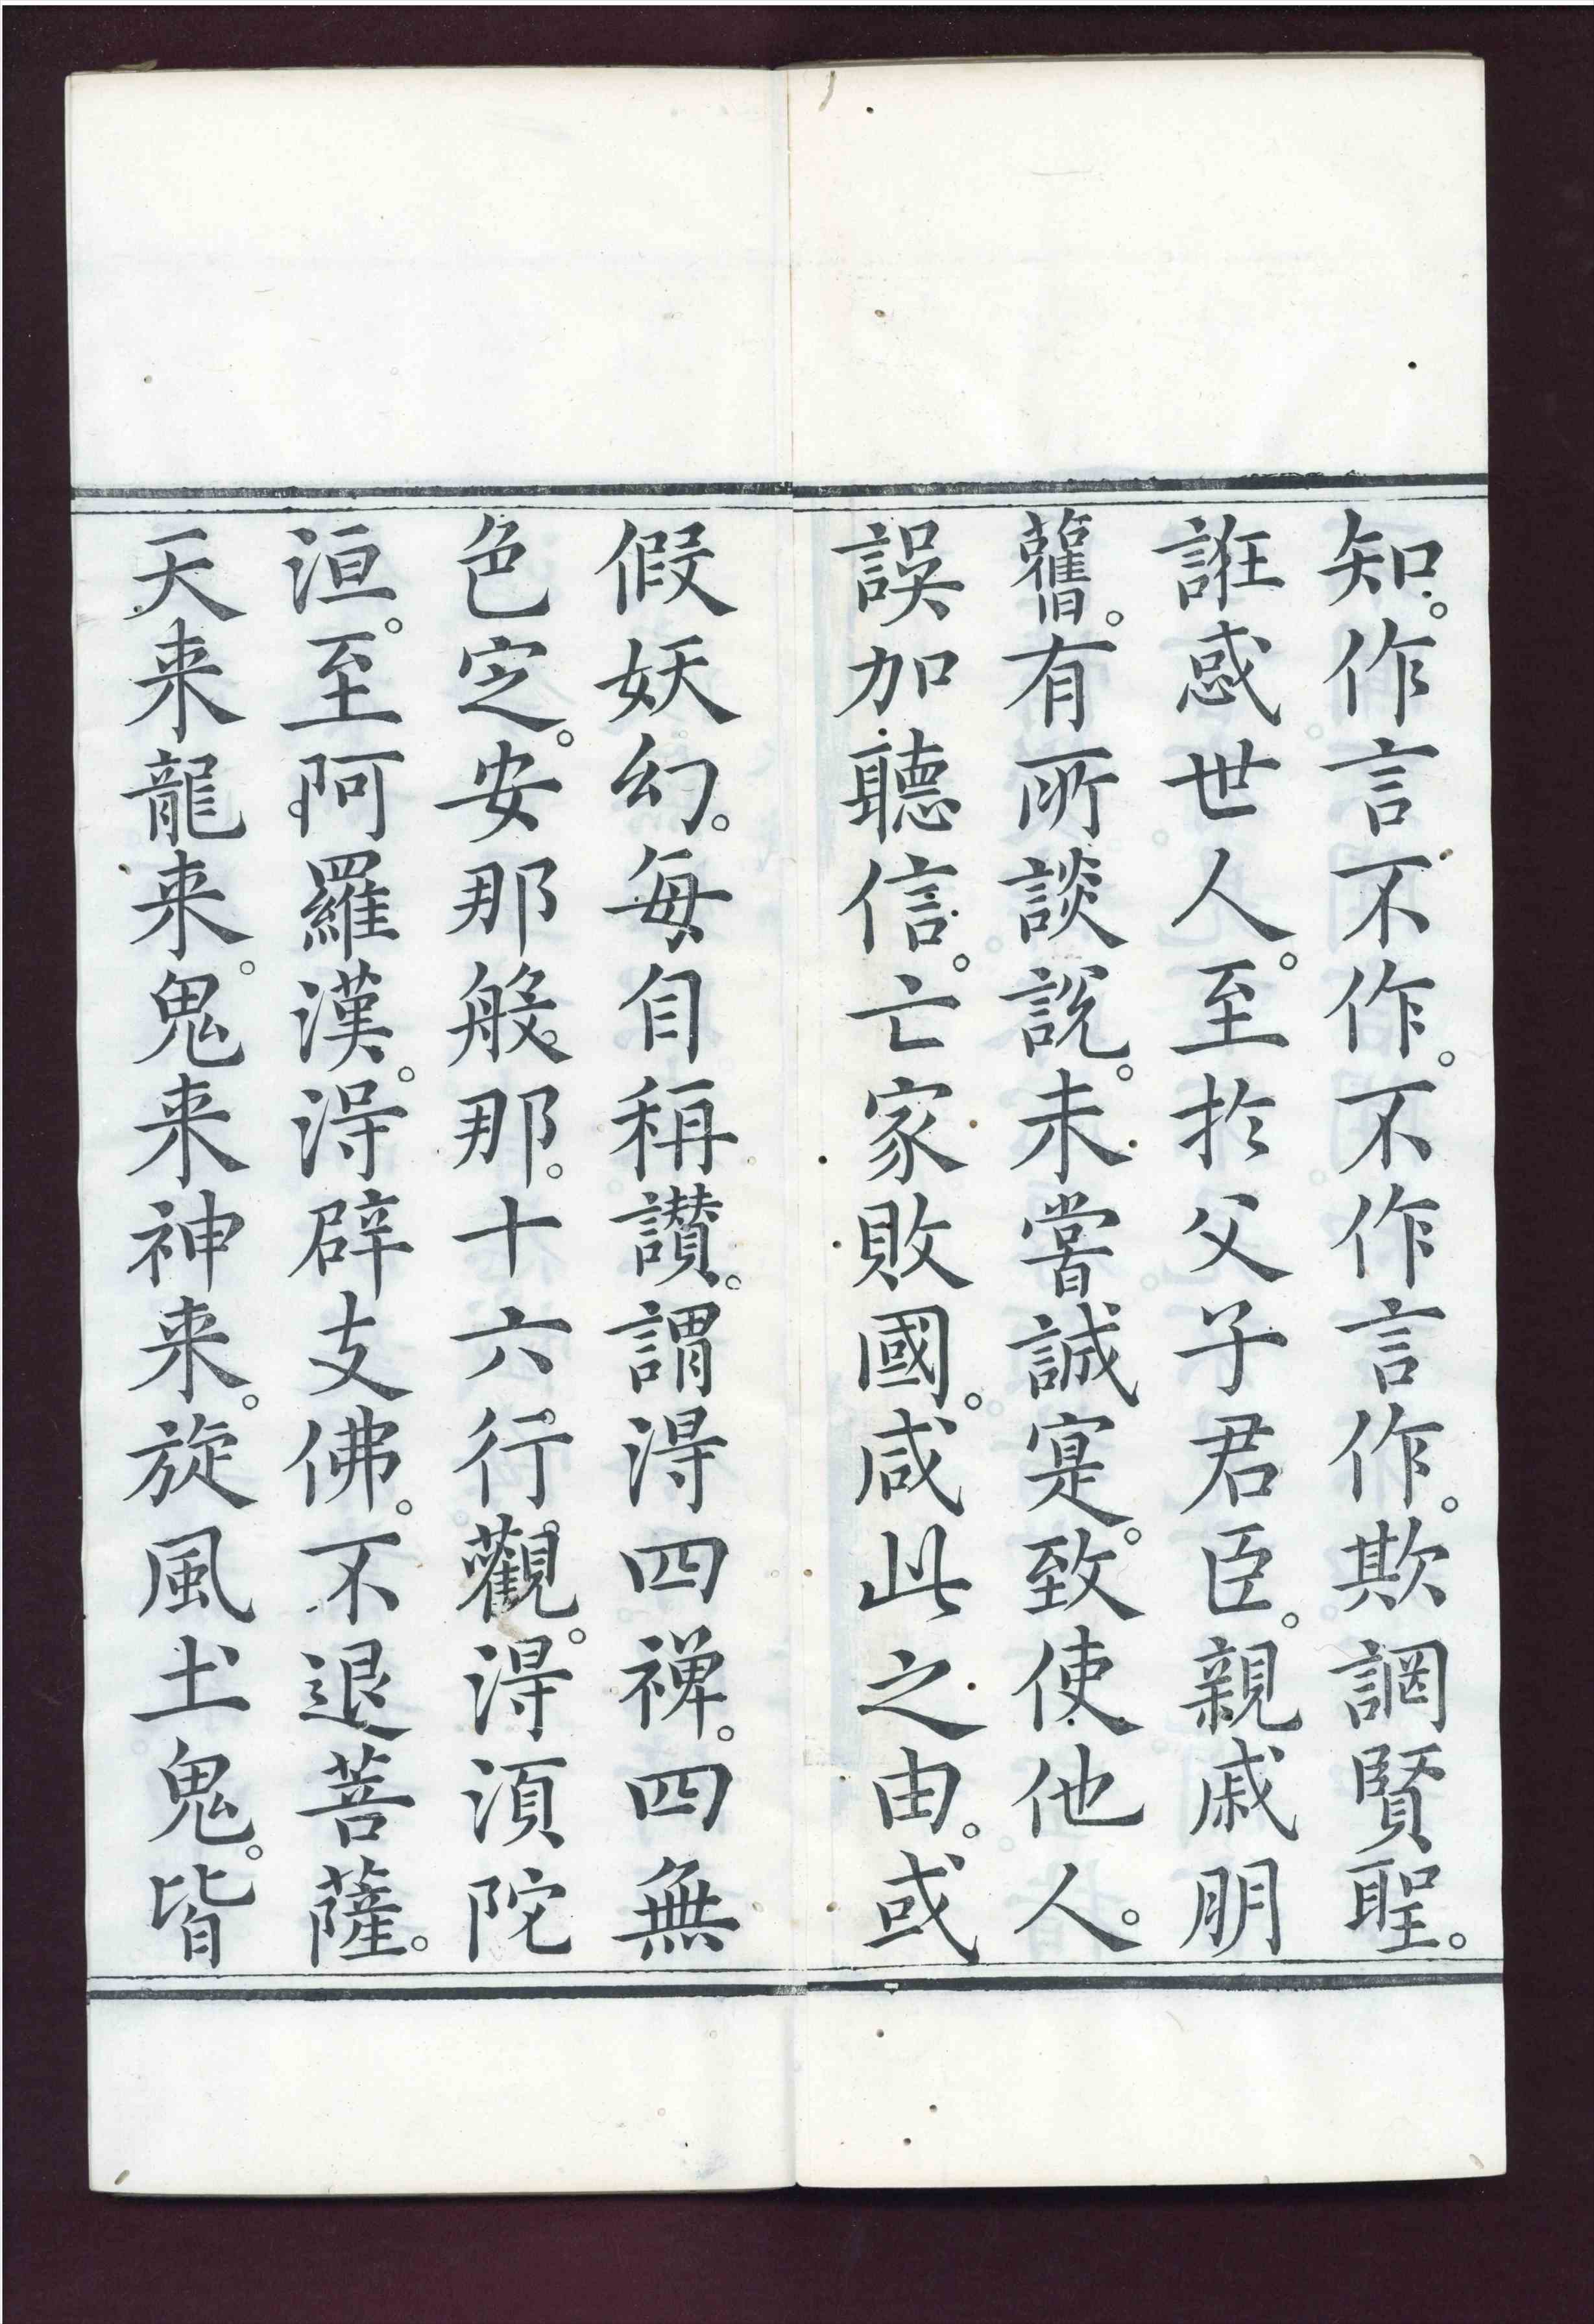 知。作言不作。不作言作。欺誷賢聖。
誑惑世人。至於父子君臣。親戚朋
舊。有所談說。未嘗誠寔。致使他人。
誤加聽信。亡家敗國。咸此之由。或
假妖幻。每自稱讚。謂得四禅。四無
色定。安那般那。十六行觀。得湏陀
洹。至阿羅漢。得辟支佛。不退菩薩。
天来龍来。鬼来神来。旋風土鬼。皆